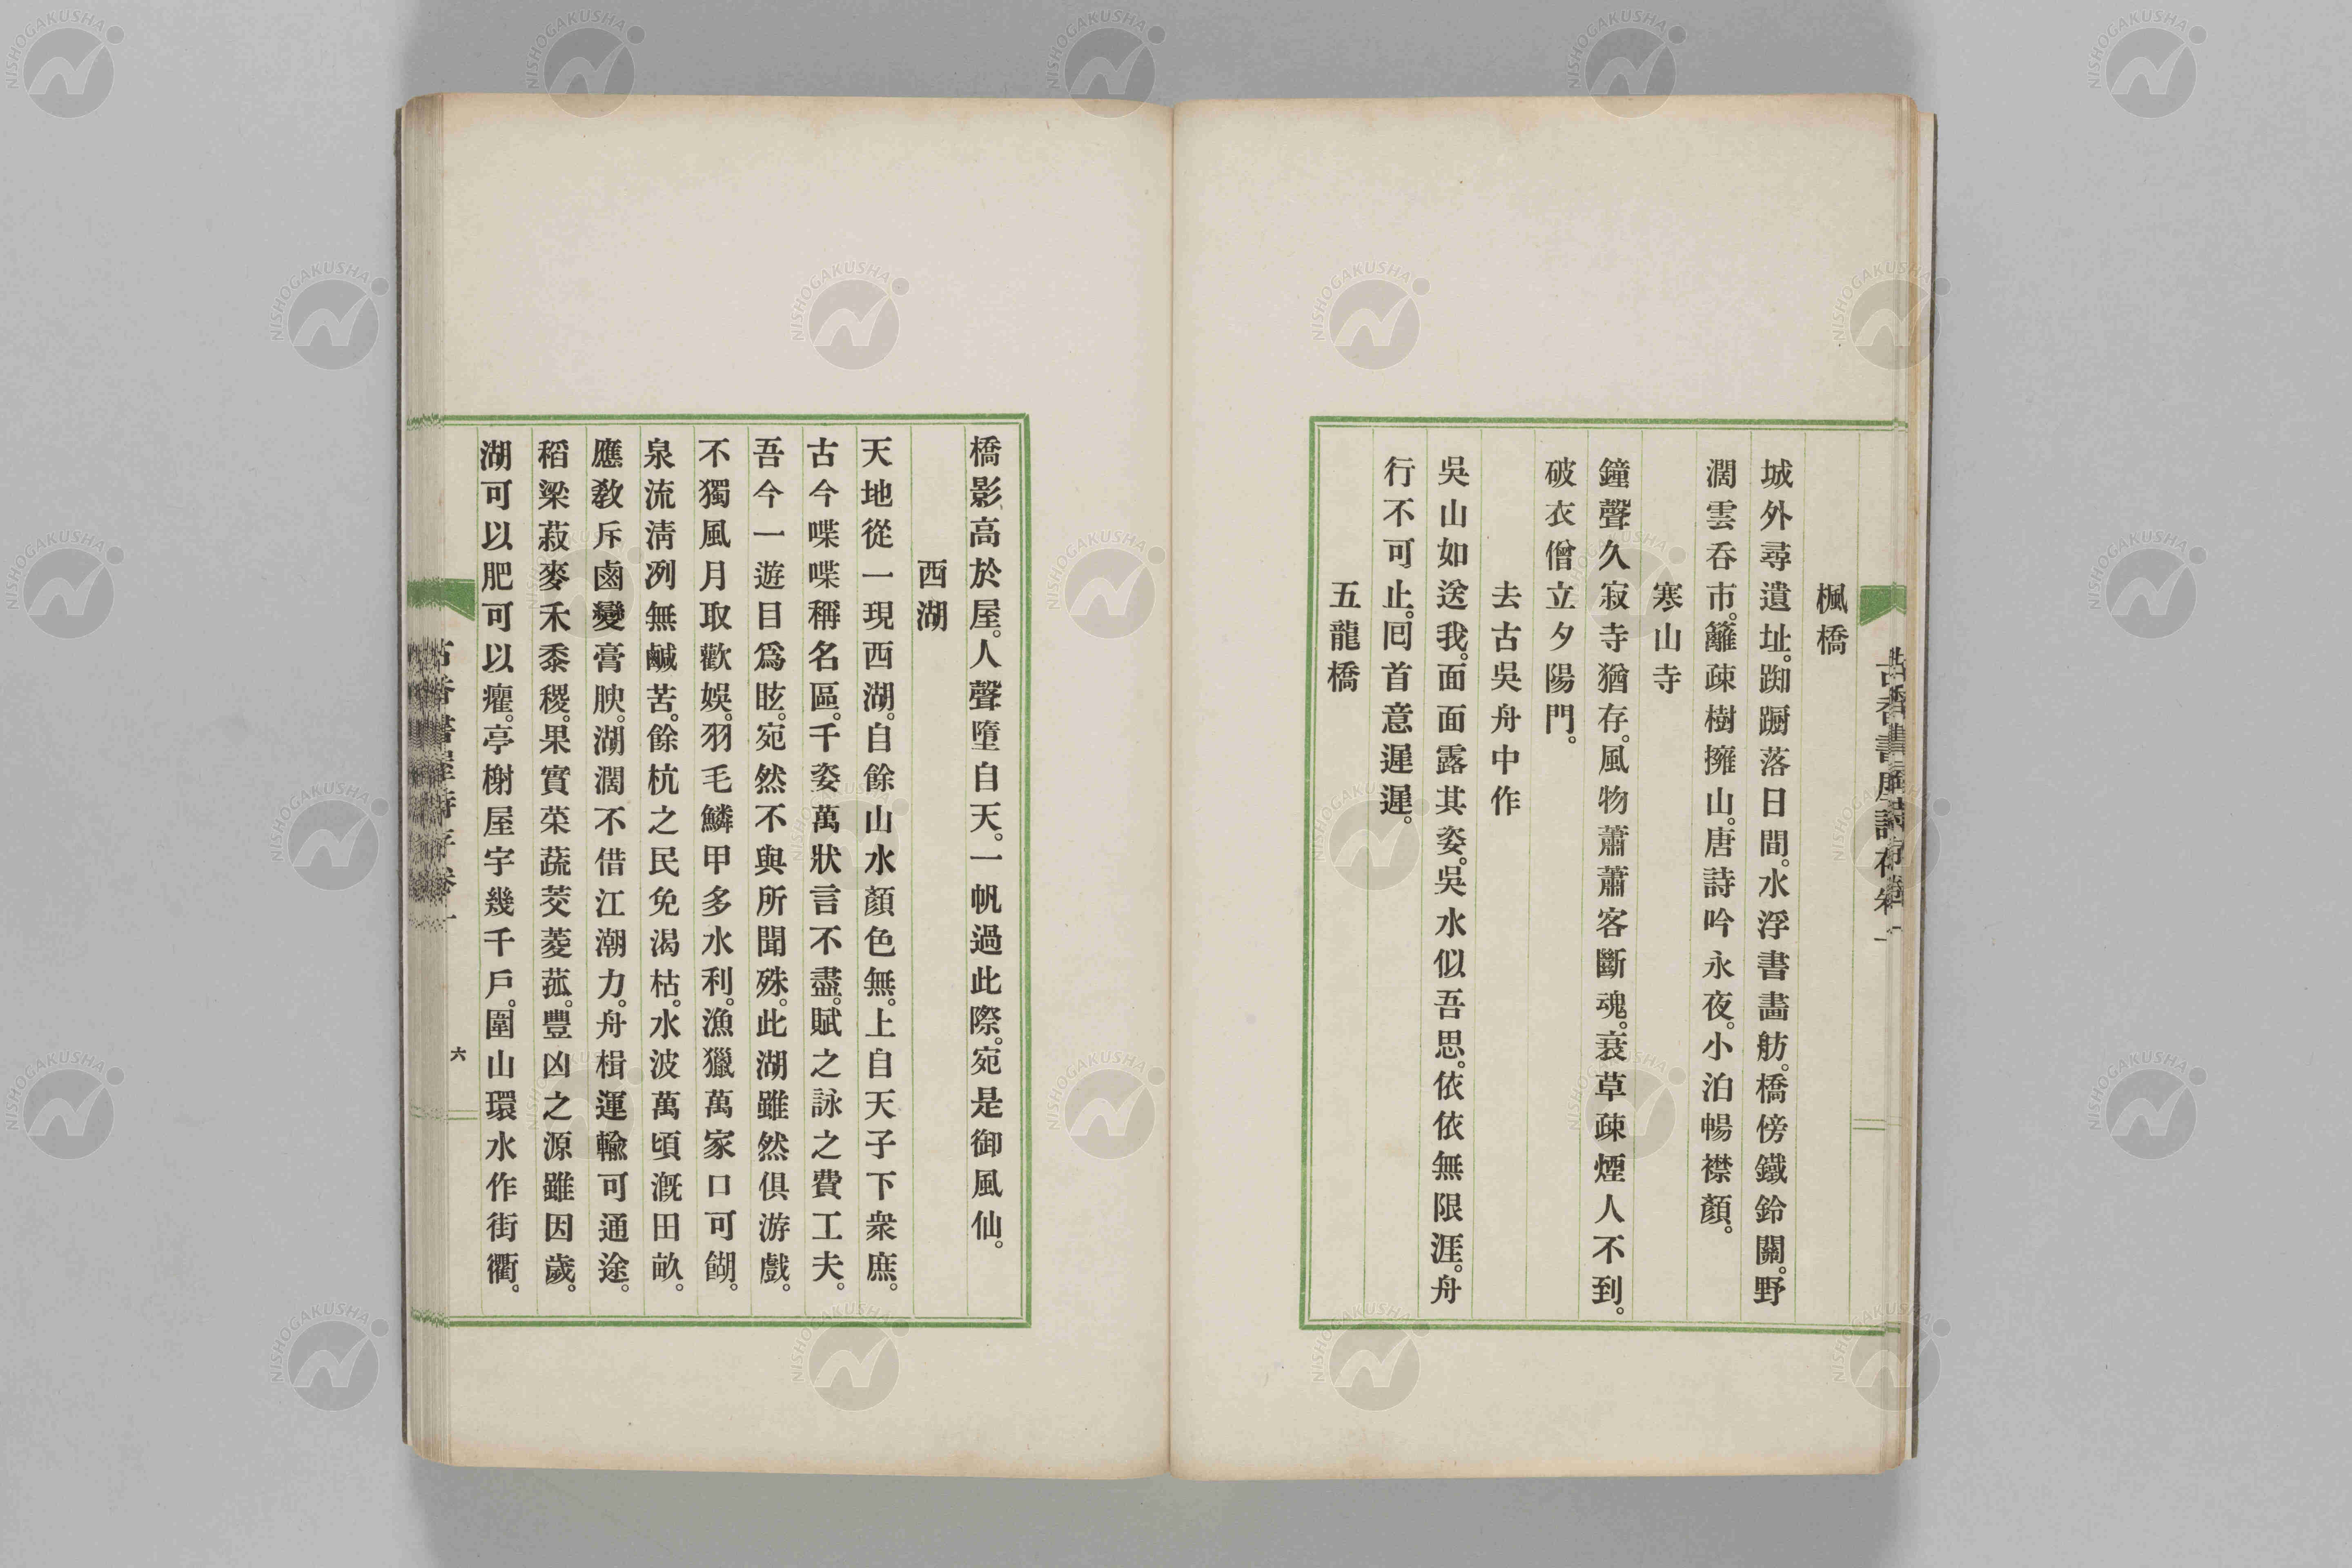 楓橋
城外尋遺址。踟躕落日間。水浮書畵舫。橋傍鐵鈴關。野
濶雲呑市。籬疎樹擁山。唐詩吟永夜。小泊暢襟顏。
寒山寺
鐘聲久寂寺猶存。風物蕭蕭客斷魂。衰草疎煙人不到。
破衣僧立夕陽門。
去古吳舟中作
吳山如送我。面面露其姿。吳水似吾思。依依無限涯。舟
行不可止。囘首意遲遲。
五龍橋
橋影高於屋。人聲墮自天。一帆過此際。宛是御風仙。
西湖
天地從一現西湖。自餘山水顏色無。上自天子下衆庶。
古今喋喋稱名區。千姿萬狀言不盡。賦之詠之費工夫。
吾今一遊目爲眩。宛然不與所聞殊。此湖雖然俱游戲。
不獨風月取歡娛。羽毛鱗甲多水利。漁獵萬家口可餬。
泉流淸冽無鹹苦。餘杭之民免渴枯。水波萬頃漑田畝。
應敎斥鹵變膏腴。湖濶不借江潮力。舟楫運輸可通途。
稻粱菽麥禾黍稷。果實菜蔬茭菱菰。豐凶之源雖因歲。
湖可以肥可以癯。亭榭屋宇幾千戶。圍山環水作街衢。
古香書屋詩存卷一
六
NISHOGAKUSHA